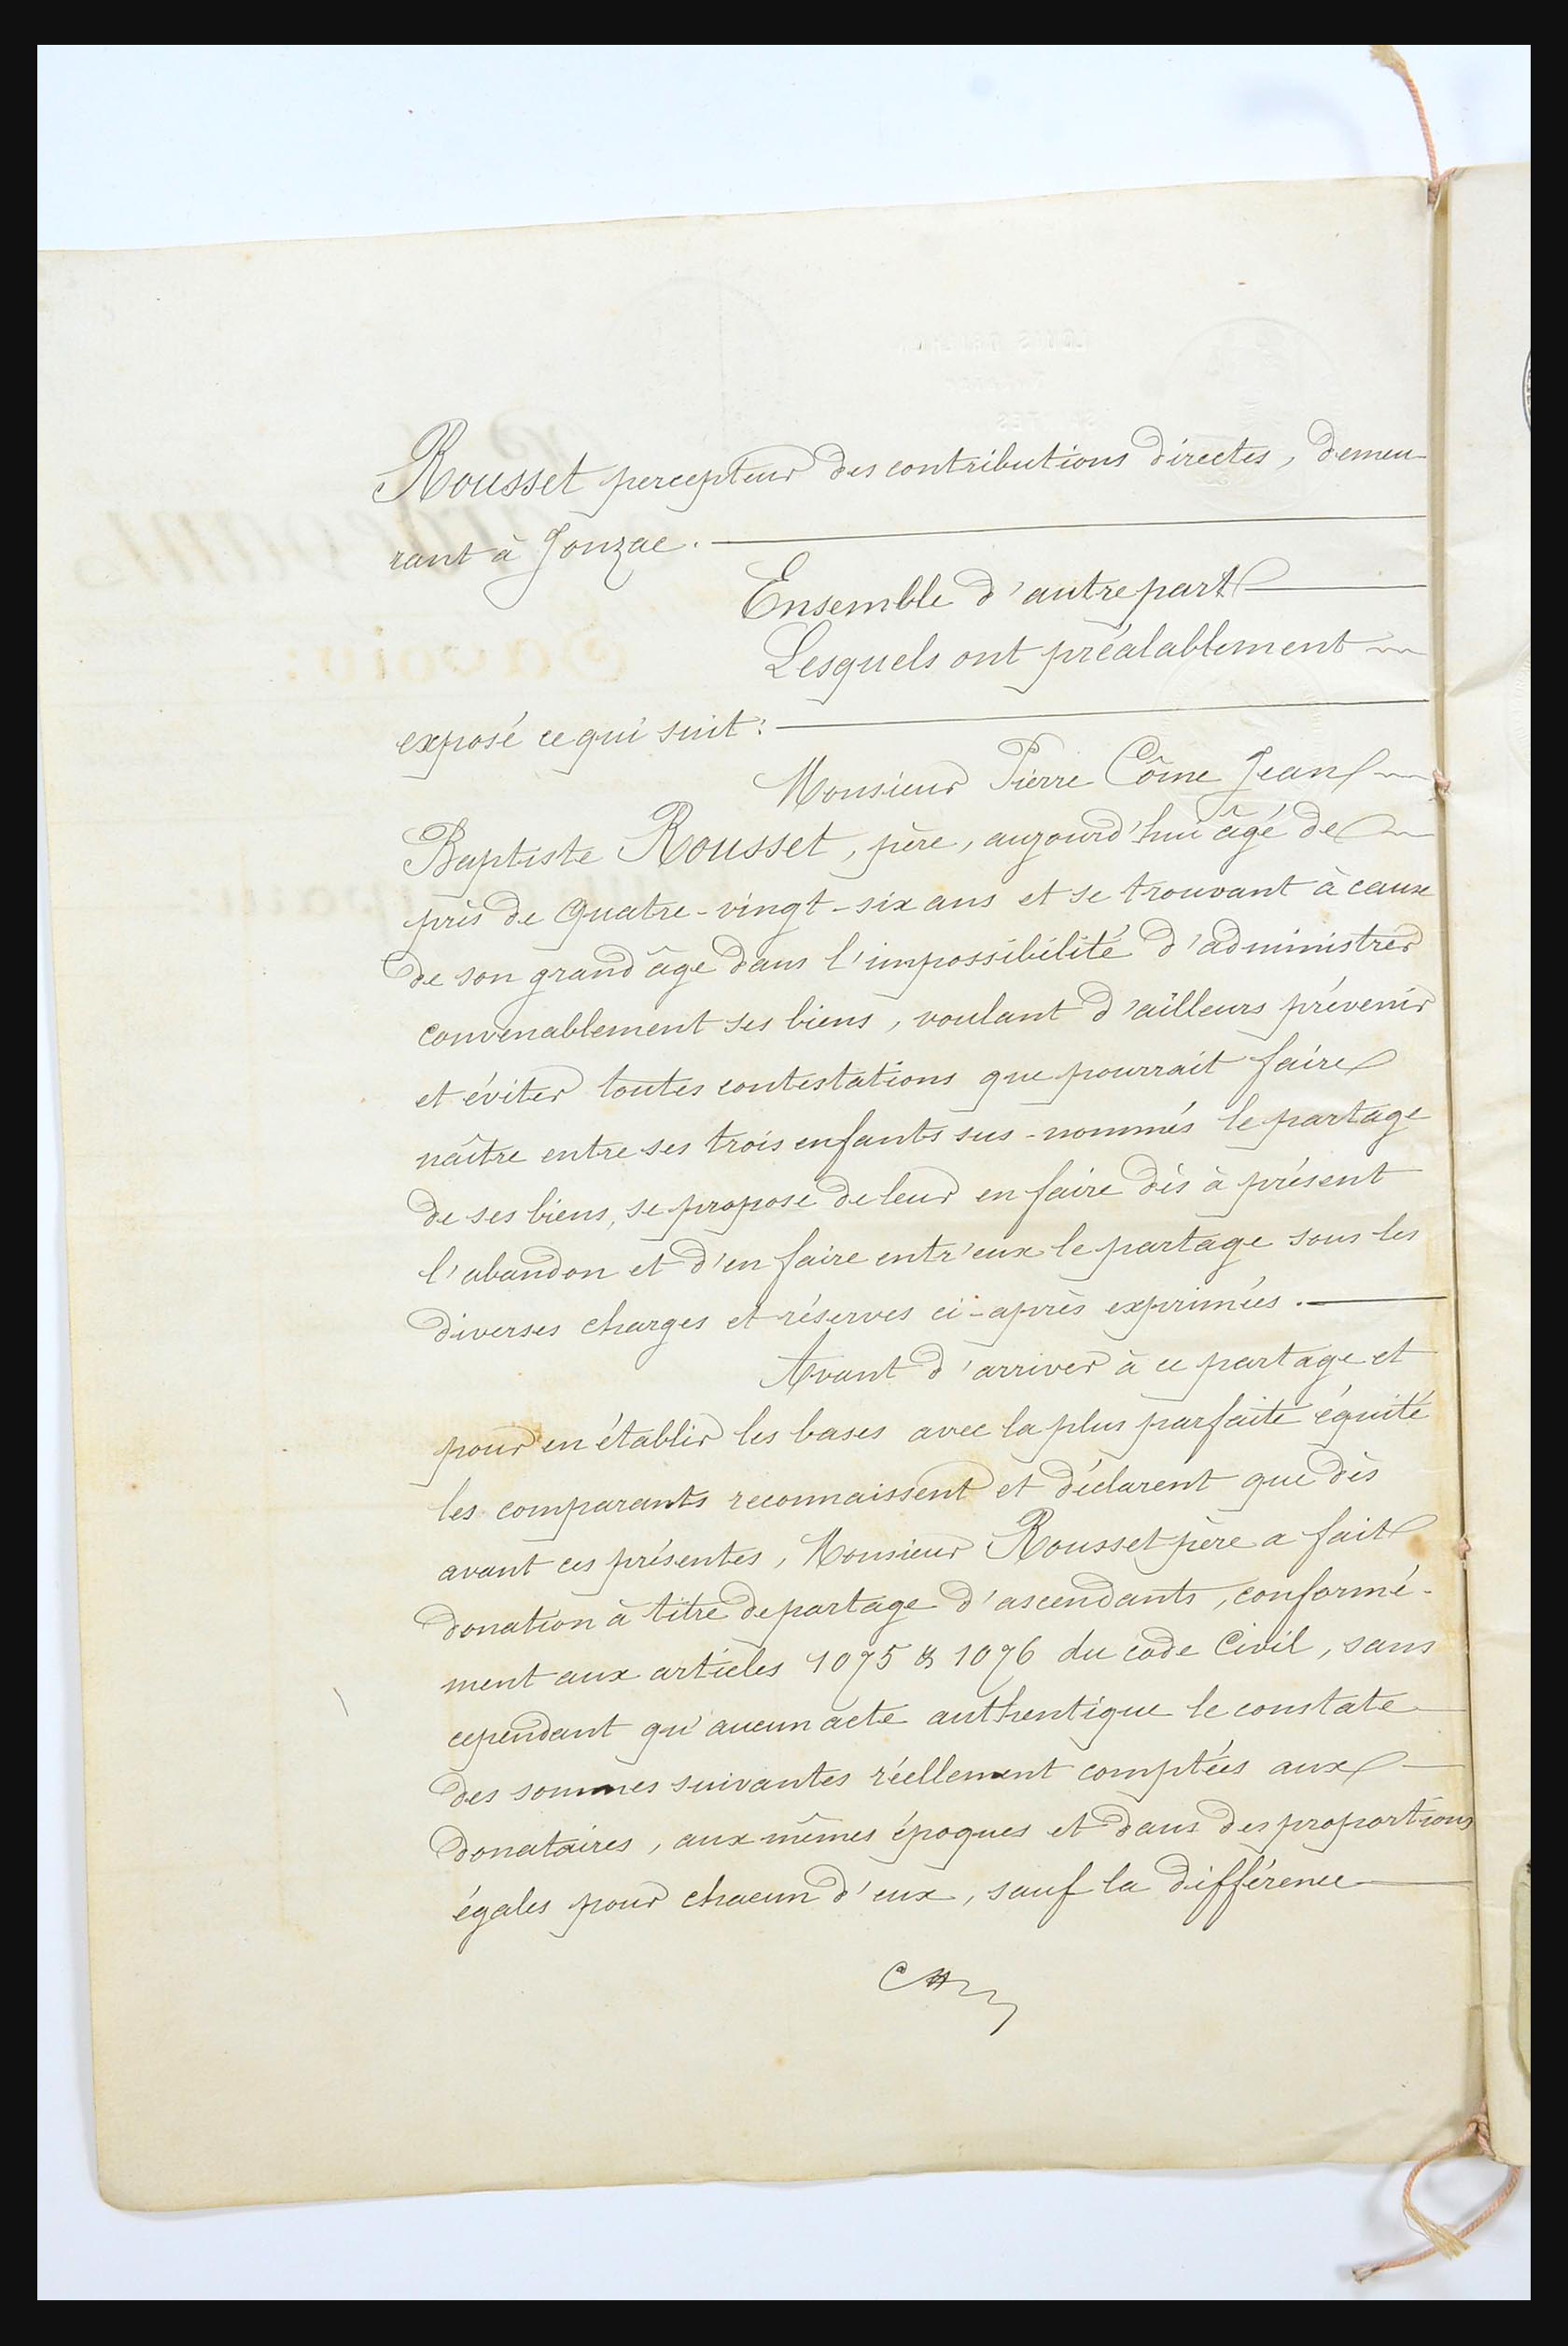 Rousset percepteur des contributions directes, demeu-
rant à Jonzac.
Ensemble d'autre part
Lesquels ont préalablement
exposé ce qui suit:
Monsieur Pierre Côme Jean
Baptiste Rousset, père, aujourd'hui âgé de
près de quatre-vingt-six ans et se trouvant à cause
de son grand âge dans l'impossibilité d'administrer
convenablement ses biens, voulant d'ailleurs prévenir
et éviter toutes contestations que pourrait faire
naître entre ses trois enfants sus-nommés le partage
de ses biens, se propose de leur en faire dès à présent
l'abandon et d'en faire entr'eux le partage sous les
diverses charges et réserves ci-après exprimées.
Avant d'arriver à ce partage et
pour en établir les bases avec la plus parfaite équité
les comparants reconnaissent et déclarent que dès
avant ces présentes, Monsieur Rousset père a fait
donation à titre de partage d'ascendants, conformé-
ment aux articles 1075 & 1076 du code Civil, sans
cependant qu'aucun acte authentique le constate
des sommes suivantes réellement comptées aux
donataires, aux mêmes époques et dans des proportions
égales pour chacun d'eux, sauf la différence